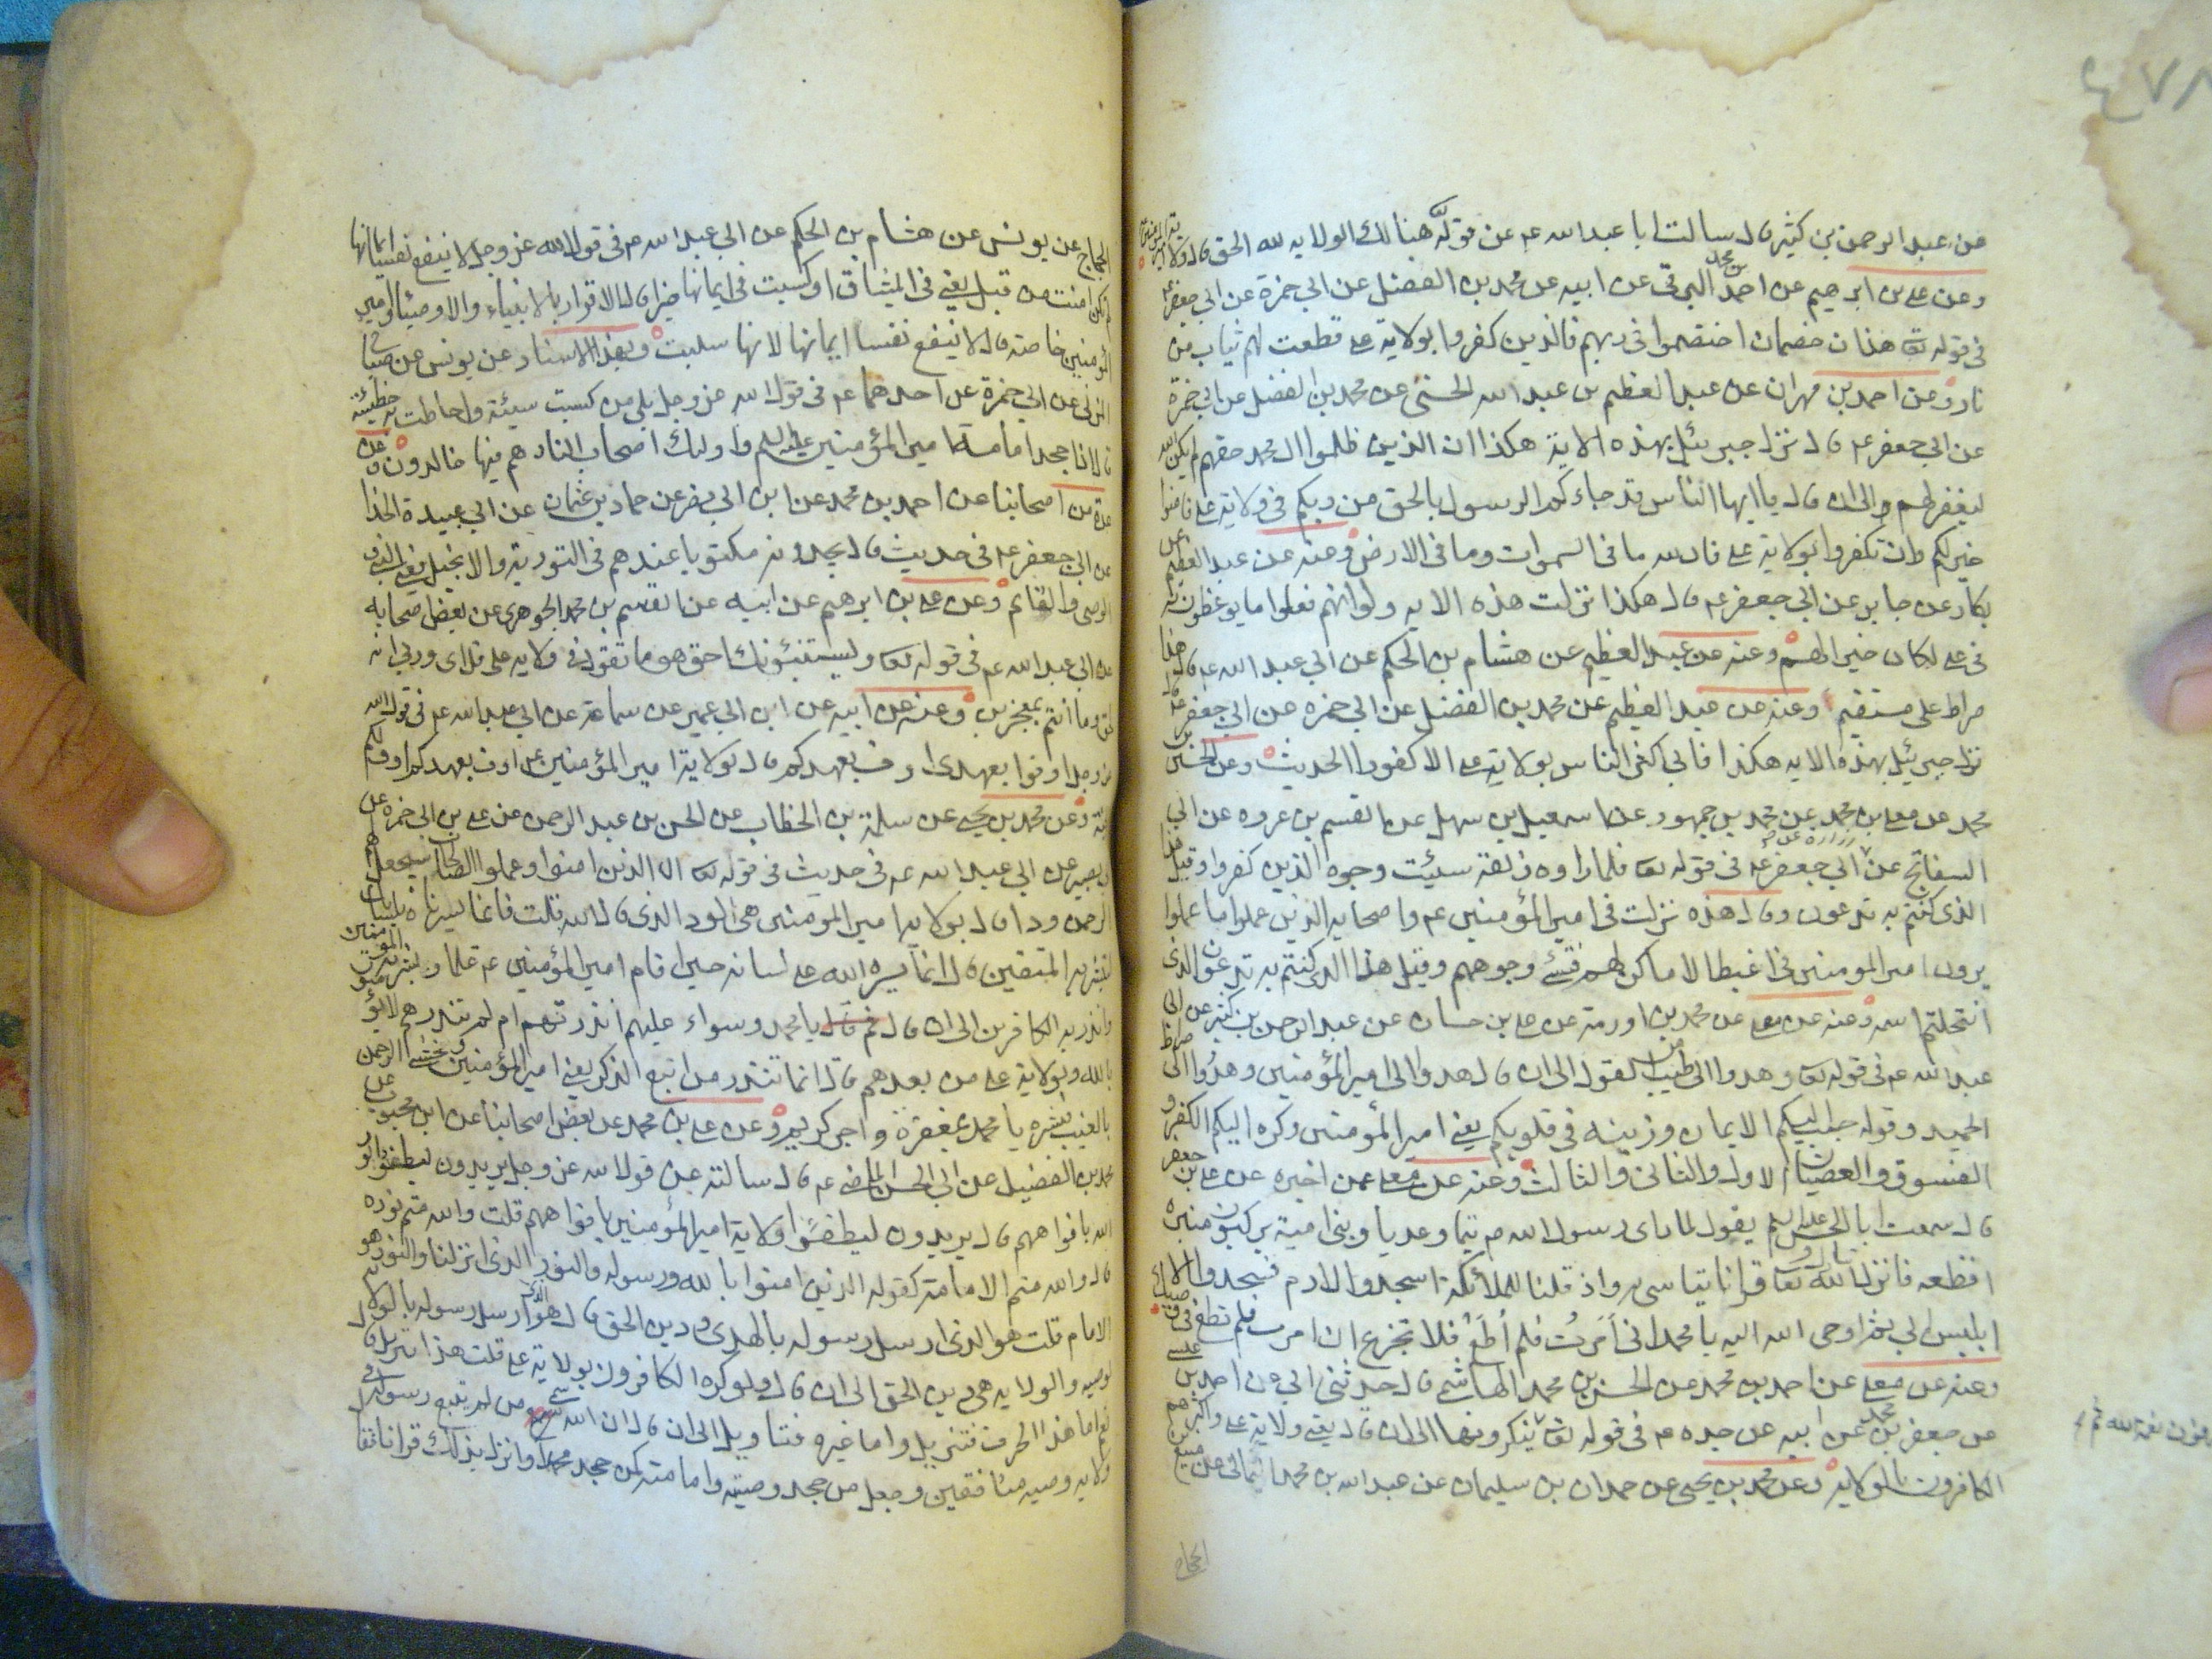 ٤٧٨
عن عبد الرحمن بن كثير قال سالت ابا عبد الله ع عن قوله هنالك الولايه لله الحق قال ولاية
وعن علي بن ابرهيم عن احمد بن محمد البرقي عن ابيه عن محمد بن الفضل عن ابي حمزة عن ابي جعفر ع
في قوله تعا هذان خصمان اختصموا في ربهم فالذين كفروا بولاية علي قطعت لهم ثياب من
نار وعن احمد بن مهران عن عبد العظيم بن عبد الله الحسني عن محمد بن الفضل عن ابي حمزة
عن ابي جعفر ع قال نزل جبرئيل بهذه الاية هكذا ان الذين ظلموا ال محمد حقهم لم يكن الله
ليغفر لهم الى ان قال يا ايها الناس قد جاءكم الرسول بالحق من ربكم في ولاية علي فامنوا
خير لكم وان تكفروا بولاية علي فان لله ما في السموات وما في الارض وعنه عن عبد العظيم عن
بكار عن جابر عن ابي جعفر ع قال هكذا نزلت هذه الايه ولو انهم فعلوا ما يوعظون به
في علي لكان خيرا لهم وعنه عن عبد العظيم عن هشام بن الحكم عن ابي عبد الله ع قال هذا
صراط علي مستقيم وعنه عن عبد العظيم عن محمد بن الفضل عن ابي حمزه عن ابي جعفر ع قال
نزل جبرئيل بهذه الايه هكذا فابى اكثر الناس بولاية علي الا كفورا الحديث وعن الحسين بن
محمد عن معلى بن محمد عن محمد بن جمهور عن اسمعيل بن سهل عن القسم بن عروه عن ابي
السفاتج عن زراره عن ابي جعفر ع في قوله تعا فلما راوه زلفة سيئت وجوه الذين كفروا وقيل هذا
الذي كنتم به تدعون قال هذه نزلت في امير المؤمنين ع واصحابه الذين عملوا ما عملوا
يرون امير المومنين في اغبط الاماكن لهم فتسئ وجوههم وقيل هذا الذي كنتم به تدعون الذي
انتحلتم اسمه وعنه عن معلى عن محمد بن اورمة عن علي بن حسان عن عبد الرحمن بن كثير عن ابي
عبد الله ع في قوله تعا وهدوا الى الطيب من القول الى ان قال هدوا الى امير المؤمنين وهدوا الى صراط
الحميد وقوله حبب اليكم الايمان وزينه في قلوبكم يعني امير المؤمنين وكره اليكم الكفر و
الفسوق والعصيان الاول والثاني والثالث وعنه عن معلى عمن اخبره عن علي بن جعفر
قال سمعت ابا الحسن عليه السلم يقول لما راى رسول الله ص تيما وعديا وبني امية يركبون منبره
افظعه فانزل الله تبارك وتعا قرانا يتاسى به واذ قلنا للملائكة اسجدوا لادم فسجدوا الا
ابليس ابى ثم اوحى الله اليه يا محمد اني أمرت فلم أطع فلا تجزع انت امرت فلم تطع في وصيك
وعنه عن معلى عن احمد بن محمد عن الحسن بن محمد الهاشمي قال حدثني ابي عن احمد بن عيسى
عن جعفر بن محمد عن ابيه عن جده ع في قوله تعا ينكرونها الى ان قال يعني ولاية علي واكثرهم
الكافرون بالولايه وعن محمد بن يحيى عن حمدان بن سليمان عن عبد الله بن محمد اليماني عن منيع
الحجاج
الحجاج عن يونس عن هشام بن الحكم عن ابي عبد الله ع في قول الله عز وجل لا ينفع نفسا ايمانها
لم تكن امنت من قبل يعني في الميثاق او كسبت في ايمانها خيرا قال الاقرار بالانبياء والاوصياء وامير
المؤمنين خاصته قال لا ينفع نفسا ايمانها لانها سلبت وبهذا الاسناد عن يونس عن صباح
المزني عن ابي حمزة عن احدهما ع في قول الله عز وجل بلى من كسب سيئة واحاطت به خطيئته
قال اذا جحد امامة امير المؤمنين عليه السلم فاولئك اصحاب النار هم فيها خالدون وعن
عدة من اصحابنا عن احمد بن محمد عن ابن ابي نصر عن حماد بن عثمان عن ابي عبيدة الحذا
عن ابي جعفر ع في حديث قال يجدونه مكتوبا عندهم في التورية والانجيل يعني النبي و
الوصي والقائم وعن علي بن ابرهيم عن ابيه عن القسم بن محمد الجوهري عن بعض اصحابه
عن ابي عبد الله ع في قوله تعا ويستنبؤنك احق هو ما تقول في ولايه علي قل اي وربي انه
لحق وما انتم بمعجزين وعنه عن ابيه عن ابن ابي عمير عن سماعة عن ابي عبد الله ع في قول الله
عز وجل اوفوا بعهدي اوف بعهدكم قال بولاية امير المؤمنين علي اوف بعهدكم اوف لكم
بالجنة وعن محمد بن يحيى عن سلمة بن الخطاب عن الحسن بن عبد الرحمن عن علي بن ابي حمزه عن
ابي بصير عن ابي عبد الله ع في حديث في قوله تعا ان الذين امنوا وعملوا الصالحات سيجعل لهم
الرحمن ودا قال بولايه امير المومنين هي الود الذي قال الله قلت فانما يسرناه بلسانك
لتبشر به المتقين قال انما يسره الله على لسانه حين اقام امير المؤمنين ع علما فبشر به المؤمنين
وانذر به الكافرين الى ان قال ثم قال يا محمد وسواء عليهم انذرتهم ام لم تنذرهم لا يؤمنون
بالله وبولاية علي من بعدهم قال انما تنذر من اتبع الذكر يعني امير المؤمنين وخشي الرحمن
بالغيب فبشره يا محمد بمغفرة واجر كريم وعن علي بن محمد عن بعض اصحابنا عن ابن محبوب عن
محمد بن الفضيل عن ابي الحسن الماضي ع قال سالته عن قول الله عز وجل يريدون ليطفؤا نور
الله بافواههم قال يريدون ليطفئوا ولاية امير المؤمنين بافواههم قلت والله متم نوره
قال والله متم الامامة كقوله الذين امنوا بالله ورسوله والنور الذي انزلنا والنور هو
الامام قلت هو الذي ارسل رسوله بالهدى ودين الحق قال هو الذي ارسل رسوله بالولايه
لوصيه والولايه هي دين الحق الى ان قال ولو كره الكافرون بولاية علي قلت هذا تنزيل قال
نعم اما هذا الحرف فتنزيل واما غيره فتاويل الى ان قال ان الله سمى من لم يتبع رسوله في
ولايه وصيه منافقين وجعل من جحد وصيته وامامته كمن جحد محمدا وانزل بذلك قرانا فقا